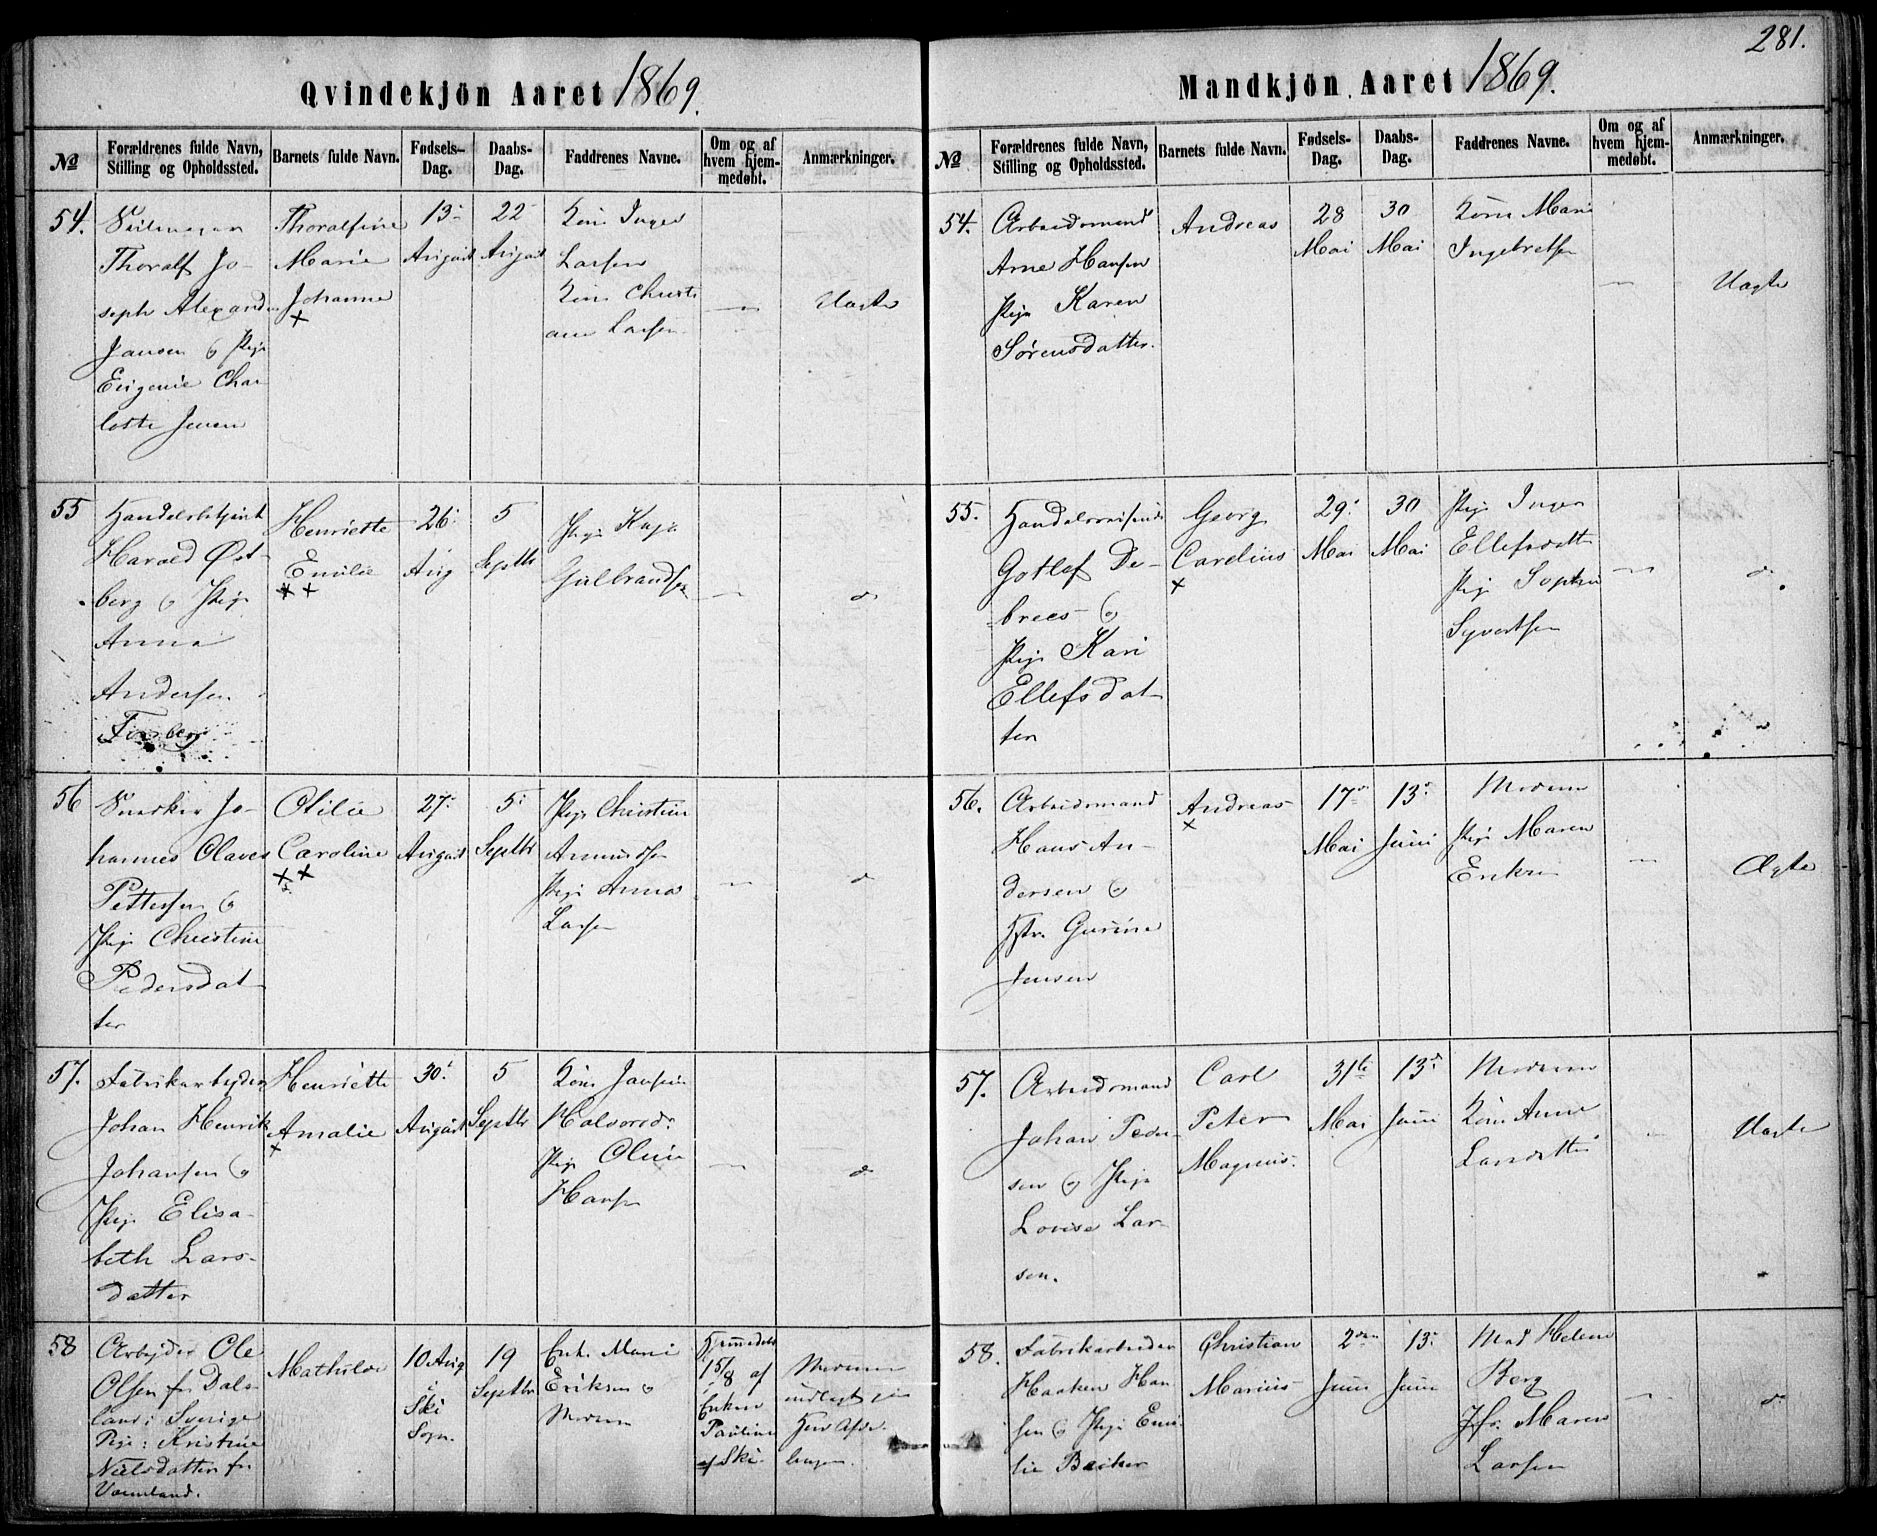 281.
Qvindekjön Aaret 1869.
№
Forældrenes fulde Navn,
Stilling og Opholdssted.
Barnets fulde Navn.
Fødsels-
Dag.
Daabs-
Dag.
Faddrenes Navne.
Om og af
hvem hjem-
medøbt.
Anmærkninger.
54.
Thoralf Jo-
seph Alexander
Jansen & Pige
Eugenie Char
lotte Jensen
Thoralfine
Marie
Johanne
+
13
August
22
August
Kone Inger
Larsen
Kone Christi
ane Larsen
—
Uægte
55
Handelsbetjent
Harald Øst-
berg & Pige
Anna
Andersen
Forsberg
Henriette
Emilie
++
26.
Aug
5
Septbr
Pige Kaja
Gulbrandsen
—
do
56
Snedker Jo-
hannes Olaves
Pettersen &
Pige Christine
Pedersdat
ter
Otilie
Caroline
++
27.
August
5.
Septbr
Pige Christine
Amundsen
Pige Anna
Larsen
—
do
57.
Fabrikarbejder
Johan Henrik
Johansen &
Pige Elisa-
beth Lars-
datter
Henriette
Amalie
+
30.
August
5
Septbr
Kone
Halvorsd.
Pige Oline
Hansen
—
do
58
Arbejder Ole
Olsen fra Dals-
land i Sverige
Pige: Kristine
Nielsdatter fra
Værmland.
Mathilde
10 Aug
i
Ski
Sogn.
19
Septbr
Enke Marie
Eriksen &
Moderen
Hjemmedøbt
15/8 af
Enken
Pauline
af Ski
Moderen
indlagt
Mandkjön Aaret 1869.
№
Forældrenes fulde Navn,
Stilling og Opholdssted.
Barnets fulde Navn.
Fødsels-
Dag.
Daabs-
Dag.
Faddrenes Navne.
Om og af
hvem hjem-
medøbt.
Anmærkninger.
54.
Arbeidsmand
Arne Hansen
Pige Karen
Sørensdatter.
Andreas
28
Mai
30
Mai
Kone Marie
Ingebretsen
—
Uægte
55.
Handelsreisende
Gotlef De-
brees &
Pige Kari
Ellefsdat
ter
Georg
Carelius
+
29.
Mai
30
Mai
Pige Inger
Ellefsdatter
Pige Sophie
Syvertsen
—
do
56.
Arbeidsmand
Hans An-
dersen &
Hstr. Gurine
Jensen
Andreas
+
17
Mai
13
Juni
Moderen
Pige Maren
Eriksen
—
Ægte
57.
Arbeidsmand
Johan Peder-
sen & Pige
Lovise Lar-
sen.
Carl
Peter
Magnus.
31te
Mai
13
Juni
Moderen
Kone Anne
Larsdatter
—
Uægte
58.
Fabrikarbeider
Haaken Han
sen & Pige Emi
lie
Christian
Marius
2den
Juni
13
Juni
Mad Helene
Berg
Jfr. Maren
Larsen
—
do